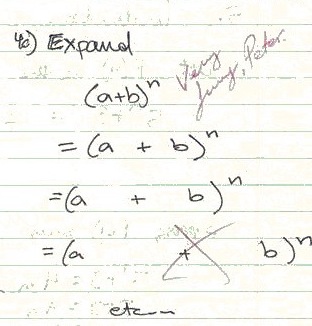 4c) Expand
Very funny, Peter.
(a+b)ⁿ
= (a + b)ⁿ
= (a + b)ⁿ
= (a + b)ⁿ
etc